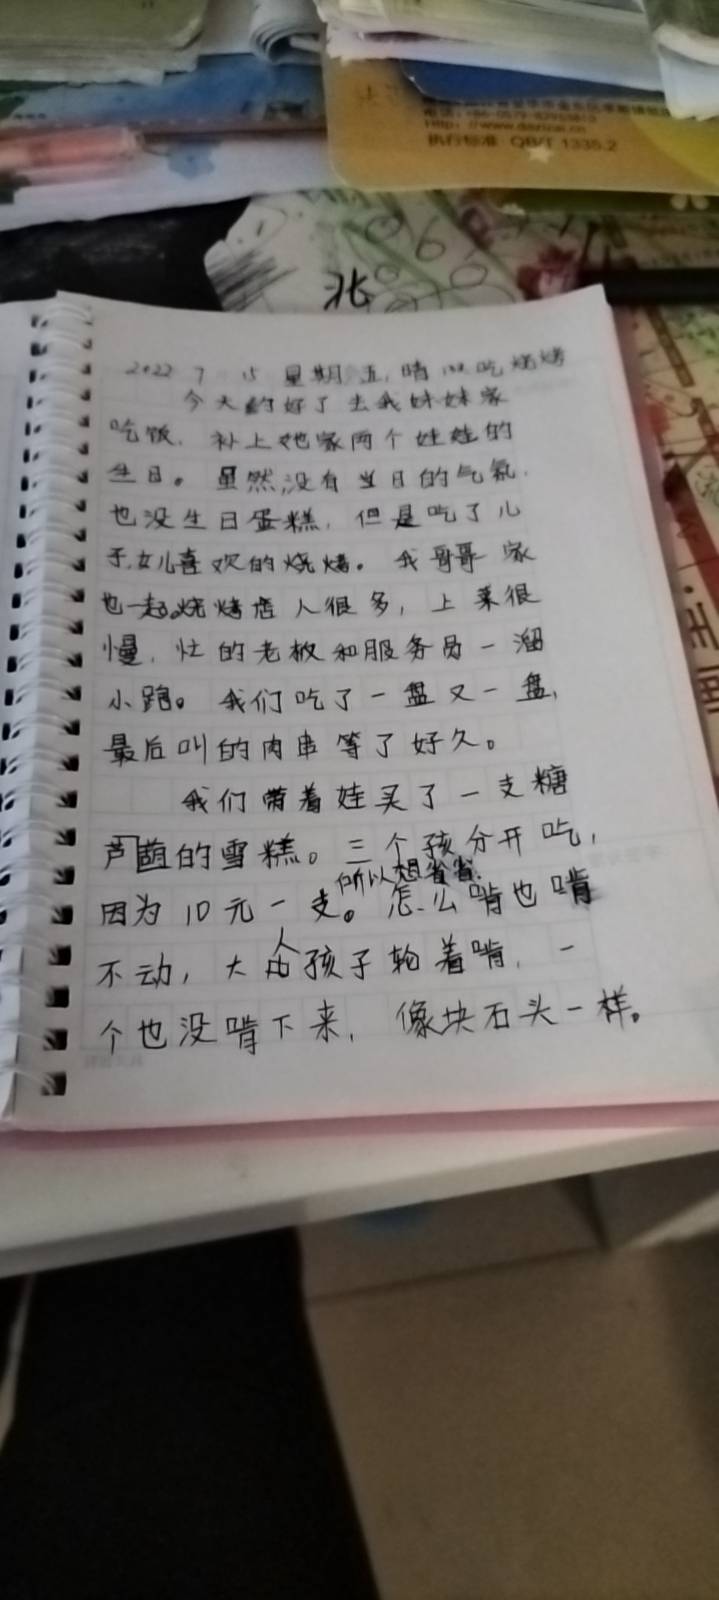 执行标准 QB/T 1335.2
北
2022 7 15 星期五,晴 吃烧烤
今天约好了去我妹妹家
吃饭,补上她家两个娃娃的
生日。虽然没有当日的气氛,
也没生日蛋糕,但是吃了儿
子,女儿喜欢的烧烤。我哥哥家
也一起。烧烤店人很多,上菜很
慢,忙的老板和服务员一溜
小跑。我们吃了一盘又一盘,
最后叫的肉串等了好久。
我们带着娃买了一支糖
芦葫的雪糕。三个孩分开吃,
所以想省省.
因为10元一支。怎么啃也啃
不动,大人孩子轮着啃,一
个也没啃下来,像块石头一样。